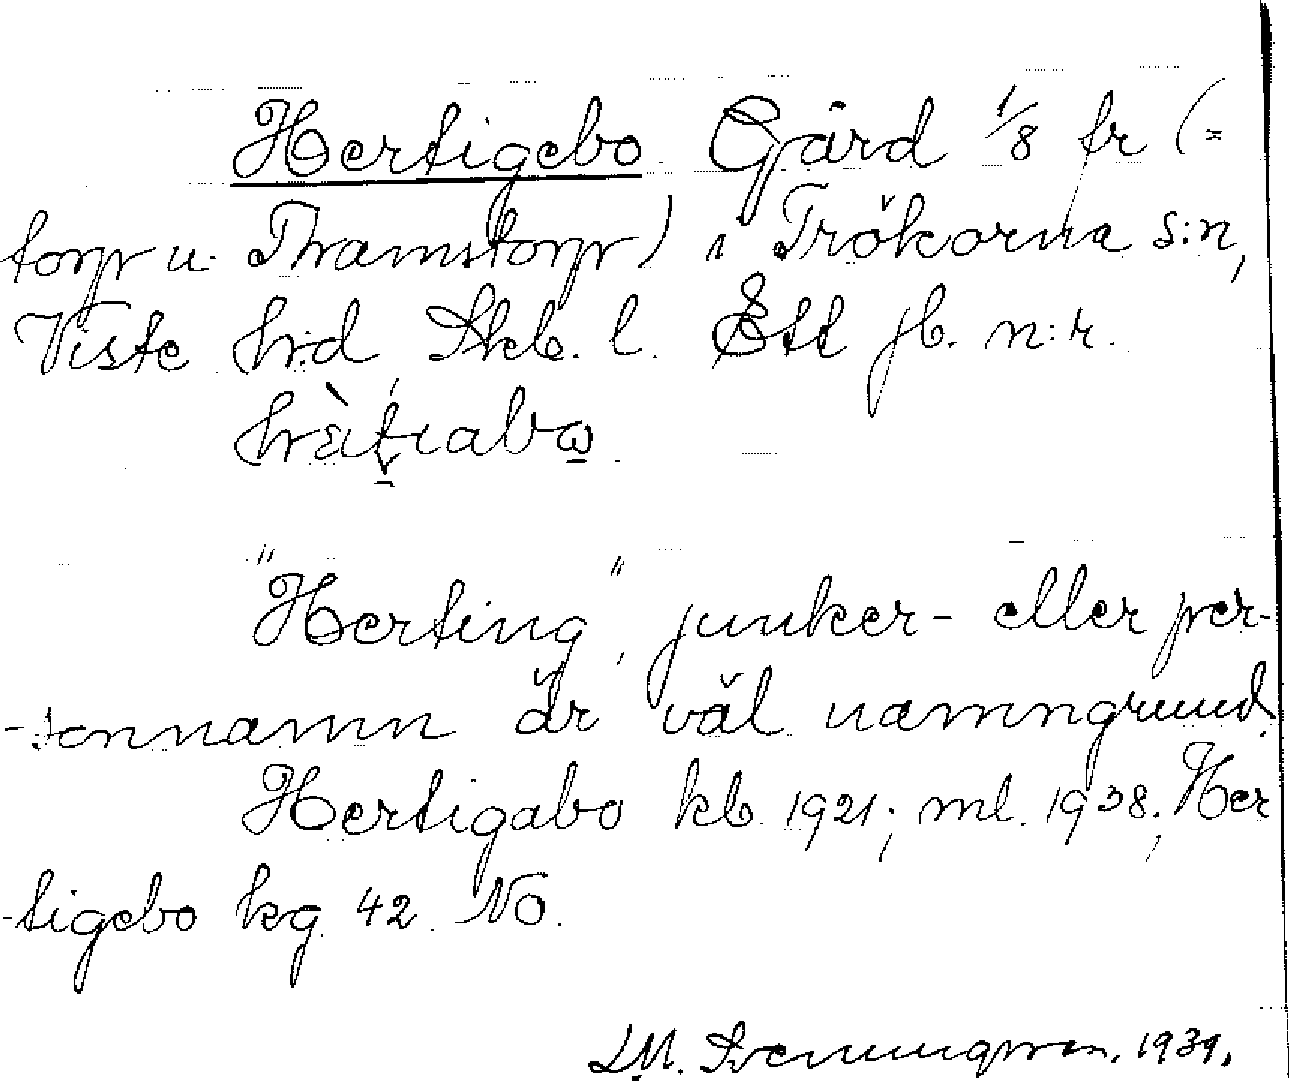 Hertigebo Gård 1/8 fr (=
torp u. Thamstorp) i Trökörna s:n,
Viste hrd Skb. l. Ett jb. n:r.
"Herting", junker- eller per-
-sonnamn är väl namngrund.
Hertigabo kb. 1921; ml. 1938; Her
-tigebo kg. 42. No.
L.M. Svenungsson. 1939.